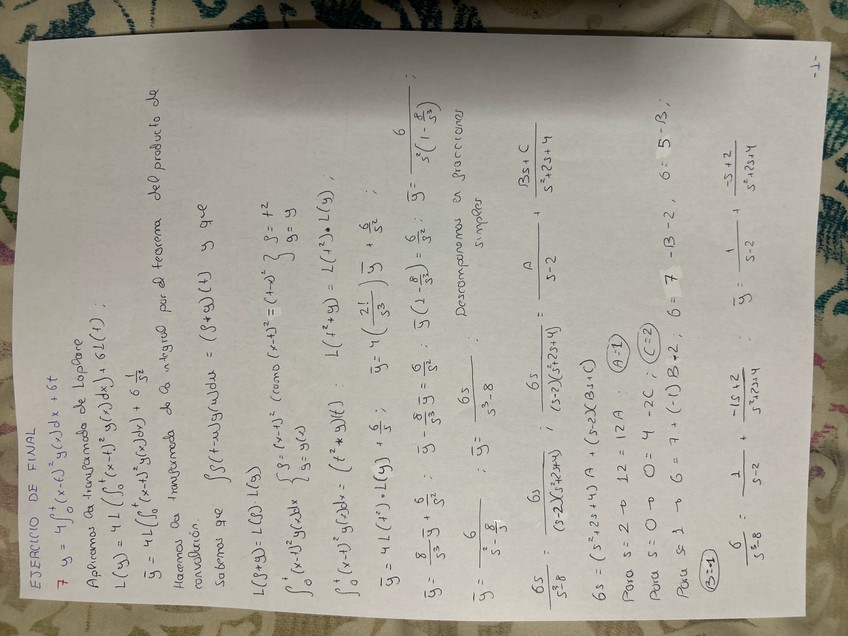 EJERCICIO DE FINAL
7 y = 4∫₀ᵗ(x-t)² y(x)dx + 6t
Aplicamos la transformada de Laplace
L(y) = 4L(∫₀ᵗ(x-t)² y(x)dx) + 6L(t);
ȳ = 4L(∫₀ᵗ(x-t)² y(x)dx) + 6 1/s²
Hacemos la transformada de la integral por el teorema del producto de
convolución.
Sabemos que ∫f(t-x)y(x)dx = (f*y)(t) y que
L(f*y) = L(f)·L(y)
∫₀ᵗ(x-t)² y(x)dx { f = (x-t)² (como (x-t)² = (t-x)² { f = t²
y = y(x) y = y
∫₀ᵗ(x-t)² y(x)dx = (t² * y)(t) ; L(t² * y) = L(t²)·L(y);
ȳ = 4L(t²)·L(y) + 6/s²; ȳ = 4(2!/s³)ȳ + 6/s² ;
ȳ = 8/s³ ȳ + 6/s² ; ȳ - 8/s³ ȳ = 6/s² ; ȳ(1 - 8/s³) = 6/s² ; ȳ = 6/(s²(1 - 8/s³)) ;
ȳ = 6/(s² - 8/s) ; ȳ = 6s/(s³-8) ; Descomponemos en fracciones
simples
6s/(s³-8) = 6s/((s-2)(s²+2s+4)) ; 6s/((s-2)(s²+2s+4)) = A/(s-2) + (Bs+C)/(s²+2s+4)
6s = (s²+2s+4)A + (s-2)(Bs+C)
Para s=2 → 12 = 12A ; A=1
Para s=0 → 0 = 4 - 2C ; C=2
Para s=1 → 6 = 7 + (-1)B+2 ; 6 = 7 - B - 2 ; 6 = 5 - B ;
B=-1
6/(s³-8) = 1/(s-2) + (-1s+2)/(s²+2s+4) ; ȳ = 1/(s-2) + (-s+2)/(s²+2s+4)
-1-